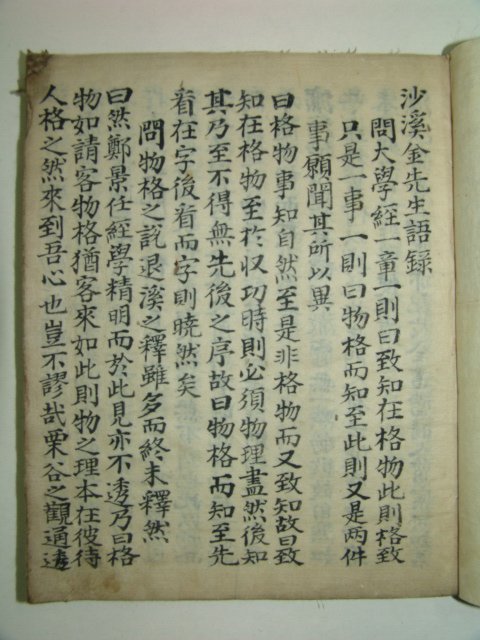 沙溪金先生語錄
問大學經一章一則曰致知在格物此則格致
只是一事一則曰物格而知至此則又是两件
事願聞其所以異
曰格物事知自然至是非格物而又致知故曰致
知在格物至於収功時則必須物理盡然後知
其乃至不得無先後之序故曰物格而知至先
看在字後看而字則曉然矣
問物格之說退溪之釋雖多而終未釋然
曰然鄭景任經學精明而於此見亦不透乃曰格
物如請客物格猶客來如此則物之理本在彼待
人格之然來到吾心也豈不謬哉栗谷之觀通透